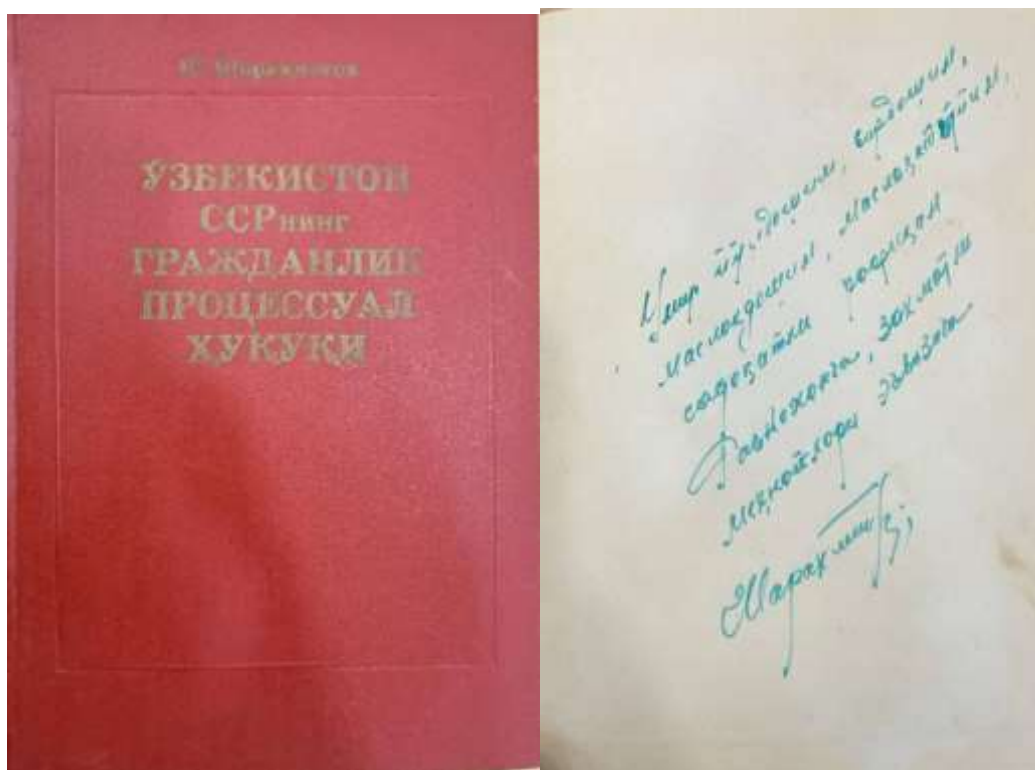 Ш. Шорахметов
ЎЗБЕКИСТОН
ССРнинг
ГРАЖДАНЛИК
ПРОЦЕССУАЛ
ҲУҚУҚИ
Умр йўлдошим, сирдошим,
маслакдошим, маслаҳатгўйим,
садоқатли рафиқам
Равнохонга, заҳматли
меҳнатлари эвазига